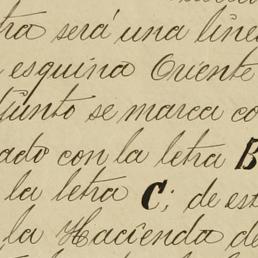 tra será una line
esquina Oriente
junto se marca co
ado con la letra B
la letra C; de est
la Hacienda de